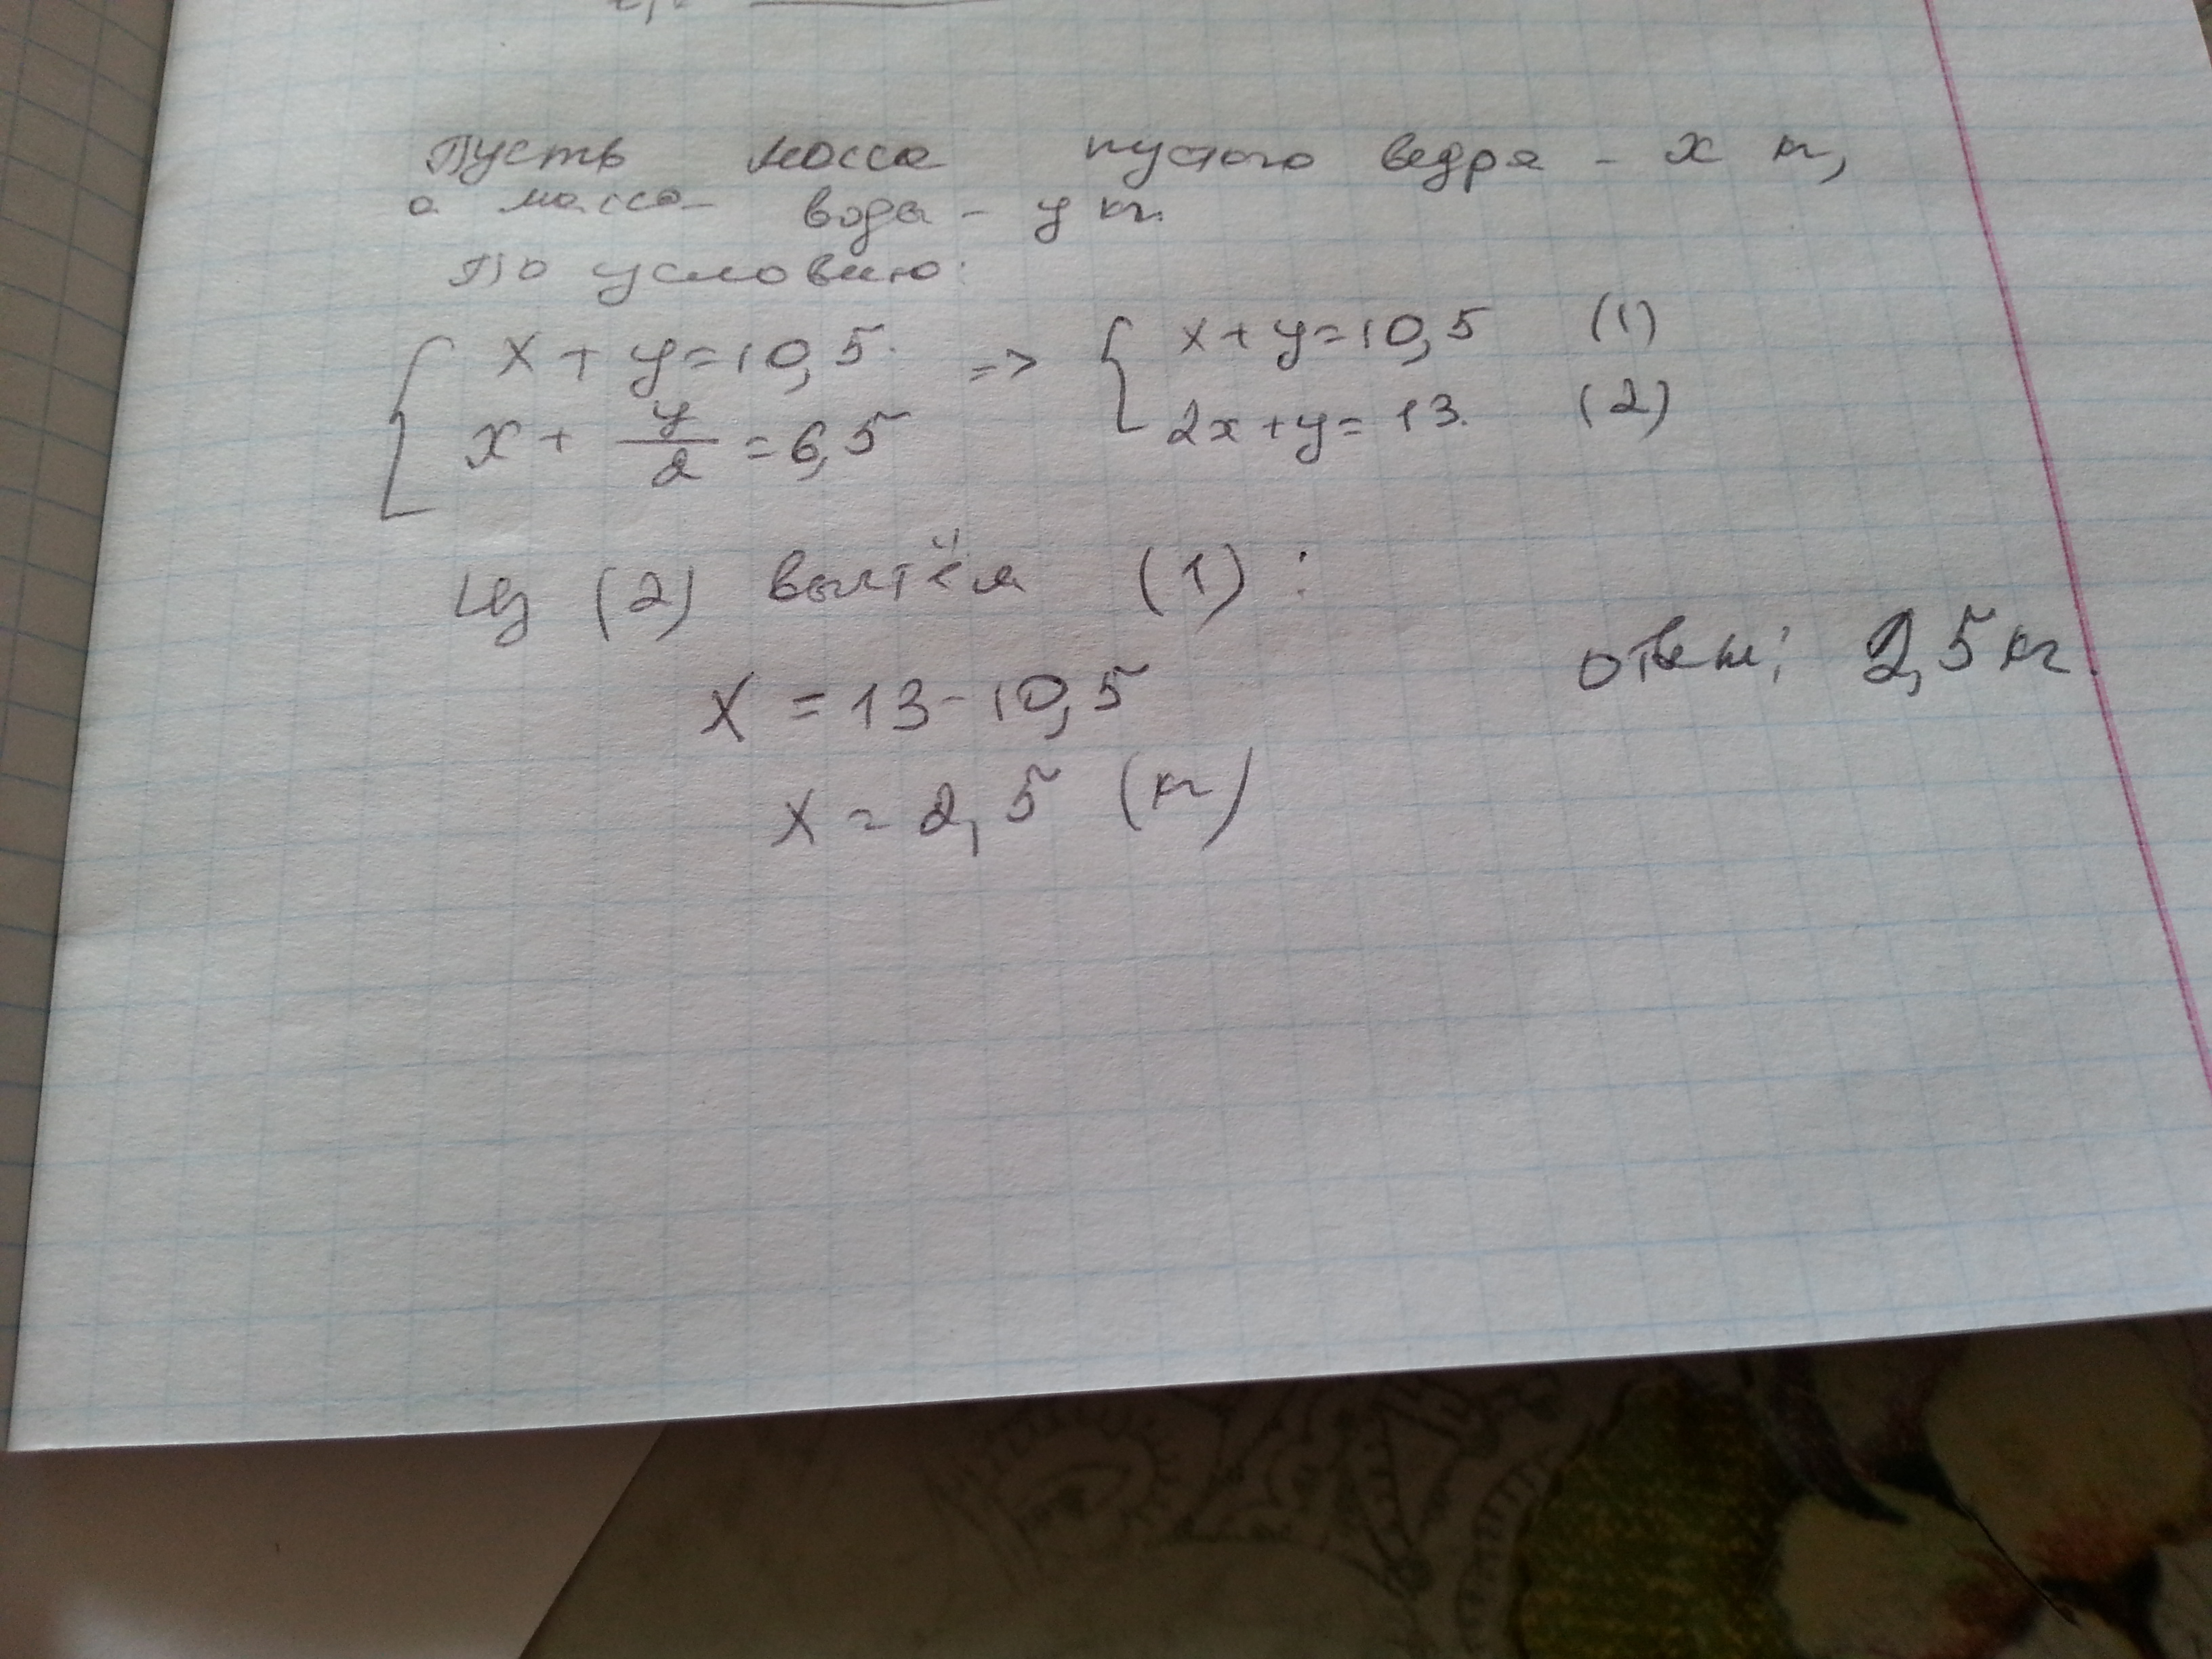 Пусть масса пустого ведра - x кг,
а масса воды - y кг.
По условию:
{ x + y = 10,5 => { x + y = 10,5 (1)
x + y/2 = 6,5 2x + y = 13. (2)
Из (2) вычтём (1) :
x = 13 - 10,5
x = 2,5 (кг)
ответ: 2,5 кг.